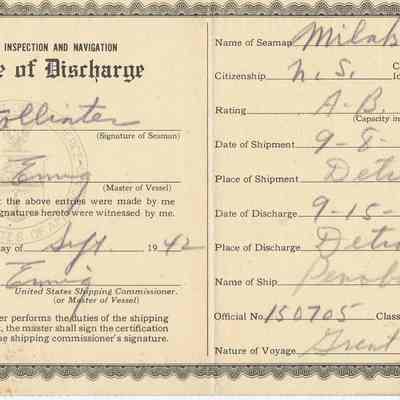 INSPECTION AND NAVIGATION
e of Discharge
(Signature of Seaman)
Emig
(Master of Vessel)
t the above entries were made by me
ignatures hereto were witnessed by me.
ay of Sept. 1942
Emig
United States Shipping Commissioner.
(or Master of Vessel)
er performs the duties of the shipping
t, the master shall sign the certification
he shipping commissioner's signature.
Name of Seaman
Citizenship
Rating A.B.
(Capacity in
Date of Shipment 9-8-
Place of Shipment Detr
Date of Discharge 9-15-
Place of Discharge Detro
Name of Ship Penob
Official No. 150705 Class
Nature of Voyage Great